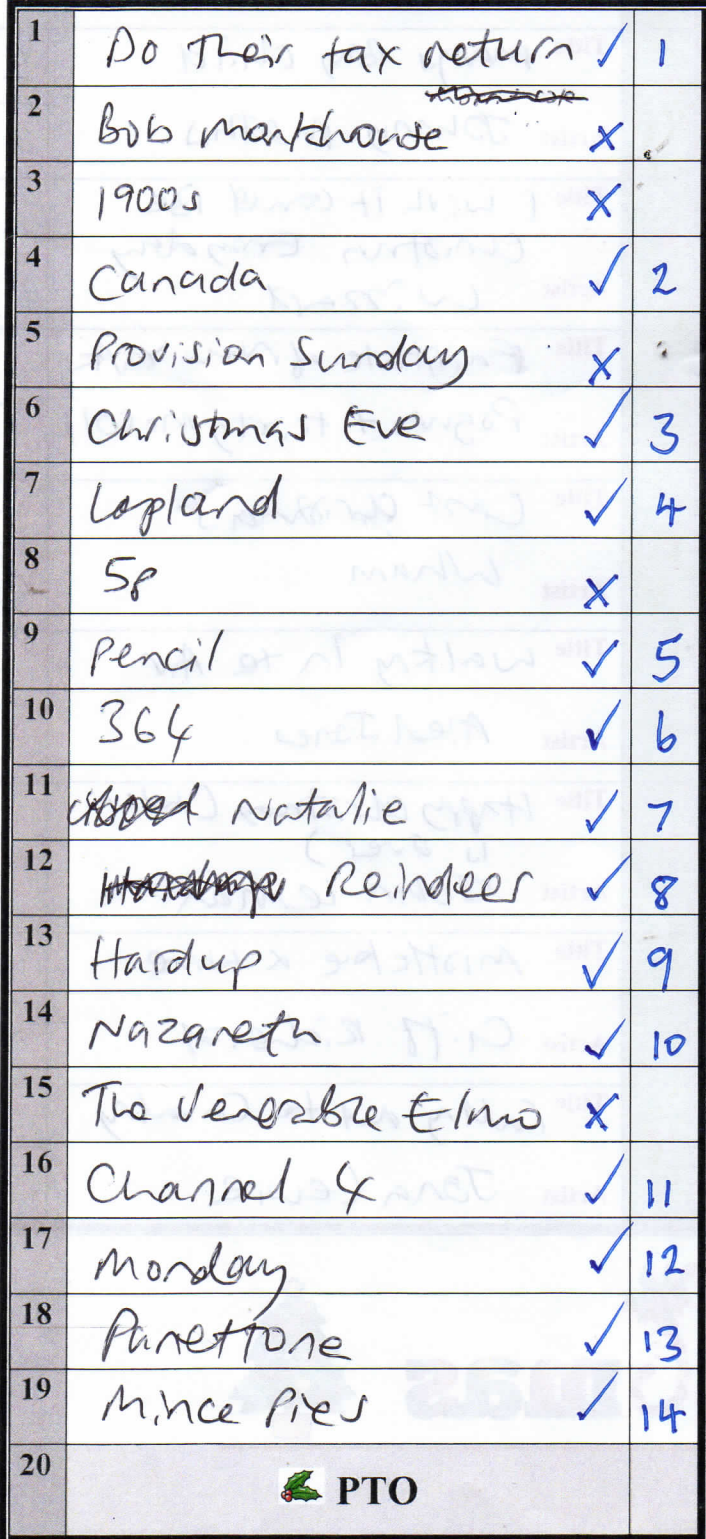 1 Do Their tax return ✓ 1
2 Bob Monkhouse X
3 1900s X
4 Canada ✓ 2
5 Provision Sunday X
6 Christmas Eve ✓ 3
7 Lapland ✓ 4
8 5p X
9 Pencil ✓ 5
10 364 ✓ 6
11 Natalie ✓ 7
12 Reindeer ✓ 8
13 Hardup ✓ 9
14 Nazareth ✓ 10
15 The Venerable Elmo X
16 Channel 4 ✓ 11
17 Monday ✓ 12
18 Panettone ✓ 13
19 Mince Pies ✓ 14
20 PTO